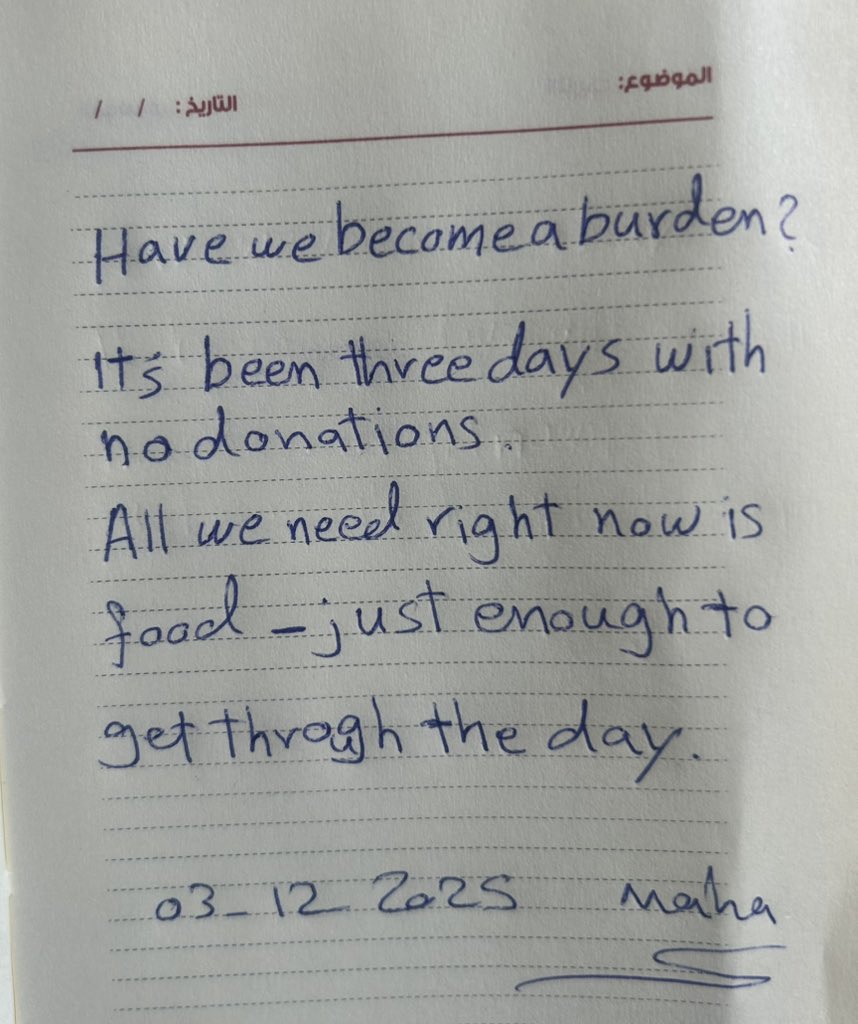 الموضوع: التاريخ: / /
Have we become a burden?
It's been three days with
no donations.
All we need right now is
food - just enough to
get throgh the day.
03-12 2025 Maha